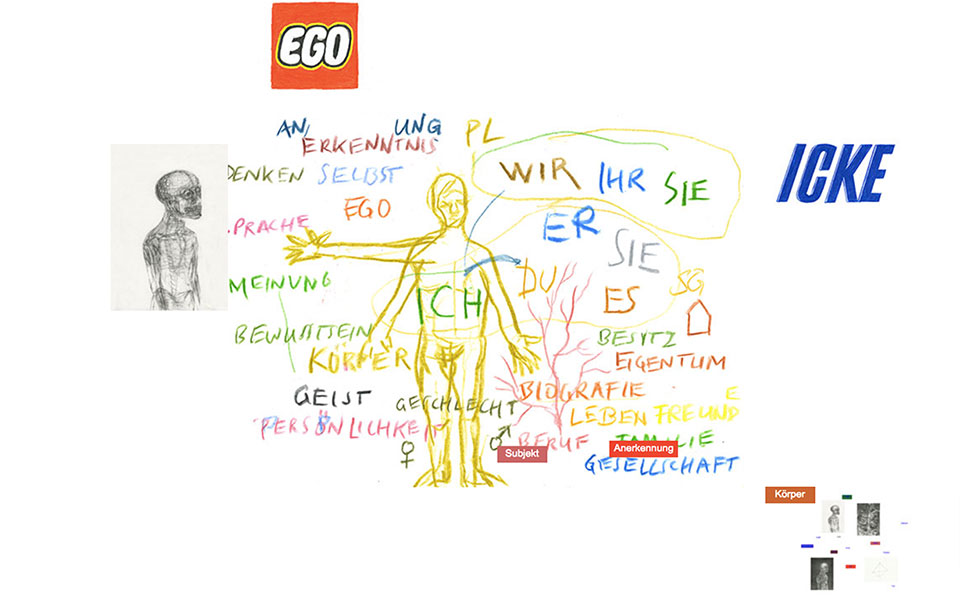 EGO
AN, UNG PL
ERKENNTNIS
DENKEN SELBST
EGO
PRACHE
MEINUNG
BEWUSSTSEIN
KÖRPER
GEIST
GESCHLECHT
PERSÖNLICHKEIT
♀ ♂
ICH
WIR IHR SIE
ER
SIE
DU
ES
SG
BESITZ
EIGENTUM
BIOGRAFIE
E
LEBEN FREUND
BERUF FAMILIE
GESELLSCHAFT
Subjekt
Anerkennung
ICKE
Körper